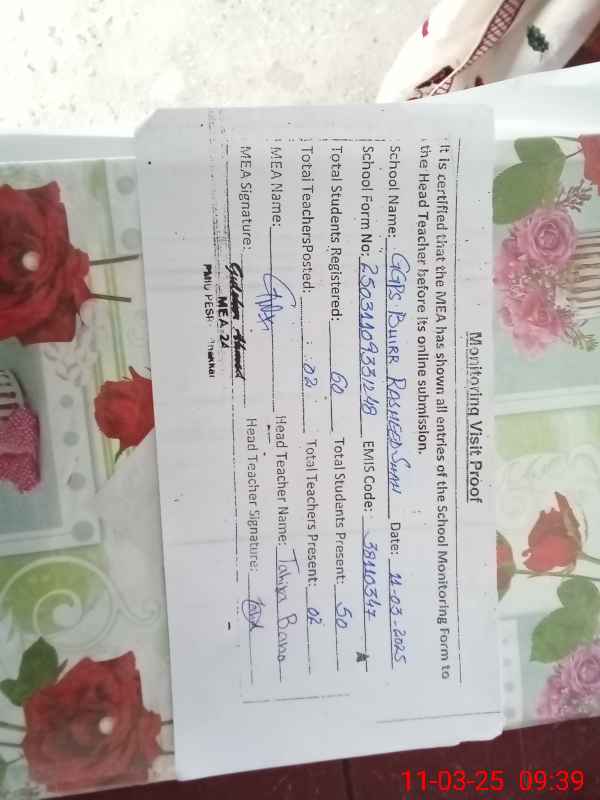 Monitoring Visit Proof
It is certified that the MEA has shown all entries of the School Monitoring Form to
the Head Teacher before its online submission.
School Name: GGPS BHIRR RASHEED SHAH Date: 11-03-2025
School Form No: EMIS Code: 38110347
Total Students Registered: 60 Total Students Present: 50
Total Teachers Posted: 02 Total Teachers Present: 02
MEA Name: Head Teacher Name: Tahira Bano
MEA Signature: Head Teacher Signature:
Ahmed
MEA 22
11-03-25 09:39